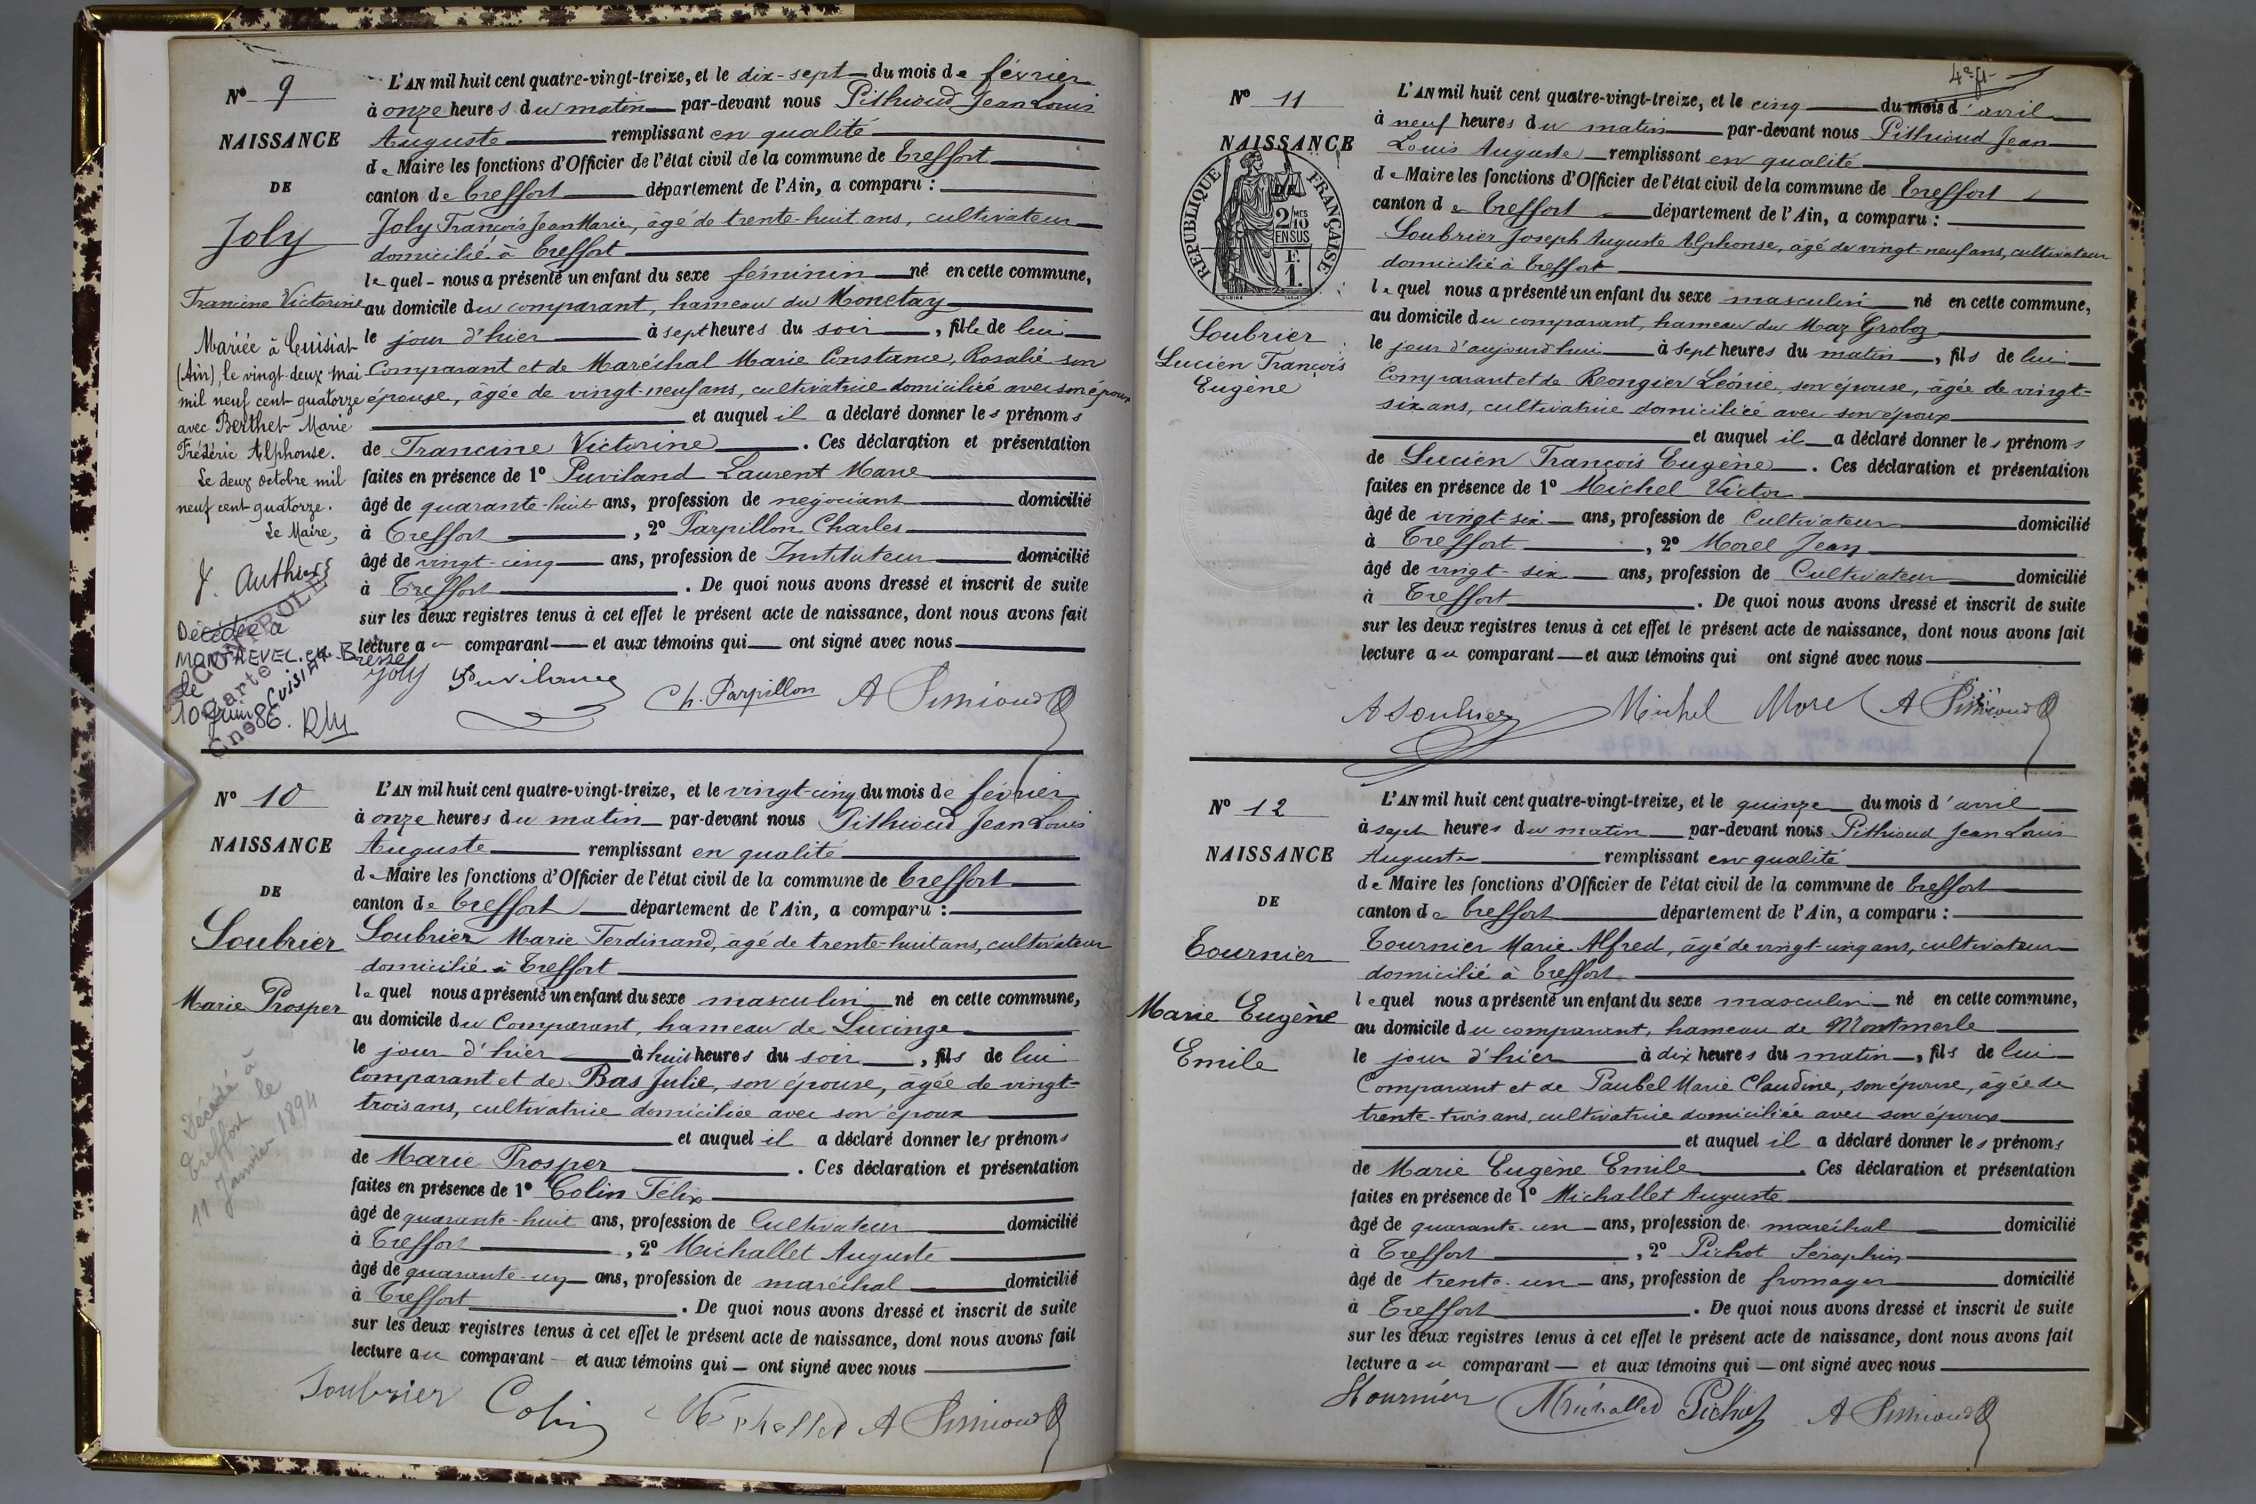 N° 9
NAISSANCE
DE
Joly
Francine Victorine
Mariée à Cuisiat
(Ain), le vingt-deux mai
mil neuf cent quatorze
avec Berthet Marie
Frédéric Alphonse.
Le deux octobre mil
neuf cent quatorze.
Le Maire,
Décédée à
MONTREVEL-en-Bresse
le
10 Juin 86.
L'AN mil huit cent quatre-vingt-treize, et le dix-sept du mois de février
à onze heures du matin par-devant nous Pithioud Jean Louis
Auguste remplissant en qualité
de Maire les fonctions d'Officier de l'état civil de la commune de Treffort
canton de Treffort département de l'Ain, a comparu :
Joly François Jean Marie, âgé de trente-huit ans, cultivateur
domicilié à Treffort
lequel nous a présenté un enfant du sexe féminin né en cette commune,
au domicile du comparant, hameau du Monetay
le jour d'hier à sept heures du soir, fille de lui
Comparant et de Maréchal Marie Constance, Rosalie son
épouse, âgée de vingt-neuf ans, cultivatrice domiciliée avec son époux
et auquel il a déclaré donner les prénoms
de Francine Victorine. Ces déclaration et présentation
faites en présence de 1° Puviland Laurent Marie
âgé de quarante-huit ans, profession de négociant domicilié
à Treffort, 2° Parpillon Charles
âgé de vingt-cinq ans, profession de Instituteur domicilié
à Treffort. De quoi nous avons dressé et inscrit de suite
sur les deux registres tenus à cet effet le présent acte de naissance, dont nous avons fait
lecture au comparant et aux témoins qui ont signé avec nous
Joly Puviland Ch. Parpillon A Pithioud
N° 10
NAISSANCE
DE
Soubrier
Marie Prosper
Décédé à
Treffort le
11 Janvier 1894
L'AN mil huit cent quatre-vingt-treize, et le vingt-cinq du mois de février
à onze heures du matin par-devant nous Pithioud Jean Louis
Auguste remplissant en qualité
de Maire les fonctions d'Officier de l'état civil de la commune de Treffort
canton de Treffort département de l'Ain, a comparu :
Soubrier Marie Ferdinand, âgé de trente-huit ans, cultivateur
domicilié à Treffort
lequel nous a présenté un enfant du sexe masculin né en cette commune,
au domicile du Comparant, hameau de Lucinge
le jour d'hier à huit heures du soir, fils de lui
Comparant et de Bas Julie, son épouse, âgée de vingt-
trois ans, cultivatrice domiciliée avec son époux
et auquel il a déclaré donner les prénoms
de Marie Prosper. Ces déclaration et présentation
faites en présence de 1° Colin Félix
âgé de quarante-huit ans, profession de Cultivateur domicilié
à Treffort, 2° Michallet Auguste
âgé de quarante-un ans, profession de maréchal domicilié
à Treffort. De quoi nous avons dressé et inscrit de suite
sur les deux registres tenus à cet effet le présent acte de naissance, dont nous avons fait
lecture au comparant et aux témoins qui ont signé avec nous
Soubrier Colin Michallet A Pithioud
4e ft
N° 11
NAISSANCE
DE
RÉPUBLIQUE FRANÇAISE
2/10 MES
EN SUS
F.
1.
Soubrier
Lucien François
Eugène
L'AN mil huit cent quatre-vingt-treize, et le cinq du mois d'avril
à neuf heures du matin par-devant nous Pithioud Jean
Louis Auguste remplissant en qualité
de Maire les fonctions d'Officier de l'état civil de la commune de Treffort
canton de Treffort département de l'Ain, a comparu :
Soubrier Joseph Auguste Alphonse, âgé de vingt-neuf ans, cultivateur
domicilié à Treffort
lequel nous a présenté un enfant du sexe masculin né en cette commune,
au domicile du comparant, hameau du Maz Groboz
le jour d'aujourd'hui à sept heures du matin, fils de lui
Comparant et de Rongier Léonie, son épouse, âgée de vingt-
six ans, cultivatrice domiciliée avec son époux
et auquel il a déclaré donner les prénoms
de Lucien François Eugène. Ces déclaration et présentation
faites en présence de 1° Michel Victor
âgé de vingt-six ans, profession de Cultivateur domicilié
à Treffort, 2° Morel Jean
âgé de vingt-six ans, profession de Cultivateur domicilié
à Treffort. De quoi nous avons dressé et inscrit de suite
sur les deux registres tenus à cet effet le présent acte de naissance, dont nous avons fait
lecture au comparant et aux témoins qui ont signé avec nous
A Soubrier Michel Morel A Pithioud
N° 12
NAISSANCE
DE
Tournier
Marie Eugène
Emile
L'AN mil huit cent quatre-vingt-treize, et le quinze du mois d'avril
à sept heures du matin par-devant nous Pithioud Jean Louis
Auguste remplissant en qualité
de Maire les fonctions d'Officier de l'état civil de la commune de Treffort
canton de Treffort département de l'Ain, a comparu :
Tournier Marie Alfred, âgé de vingt cinq ans, cultivateur
domicilié à Treffort
lequel nous a présenté un enfant du sexe masculin né en cette commune,
au domicile du comparant, hameau de Montmerle
le jour d'hier à dix heures du matin, fils de lui
Comparant et de Paubel Marie Claudine, son épouse, âgée de
trente-trois ans, cultivatrice domiciliée avec son époux
et auquel il a déclaré donner les prénoms
de Marie Eugène Emile. Ces déclaration et présentation
faites en présence de 1° Michallet Auguste
âgé de quarante-un ans, profession de maréchal domicilié
à Treffort, 2° Pichot Séraphin
âgé de trente-un ans, profession de fromager domicilié
à Treffort. De quoi nous avons dressé et inscrit de suite
sur les deux registres tenus à cet effet le présent acte de naissance, dont nous avons fait
lecture au comparant et aux témoins qui ont signé avec nous
Tournier Michallet Pichot A Pithioud